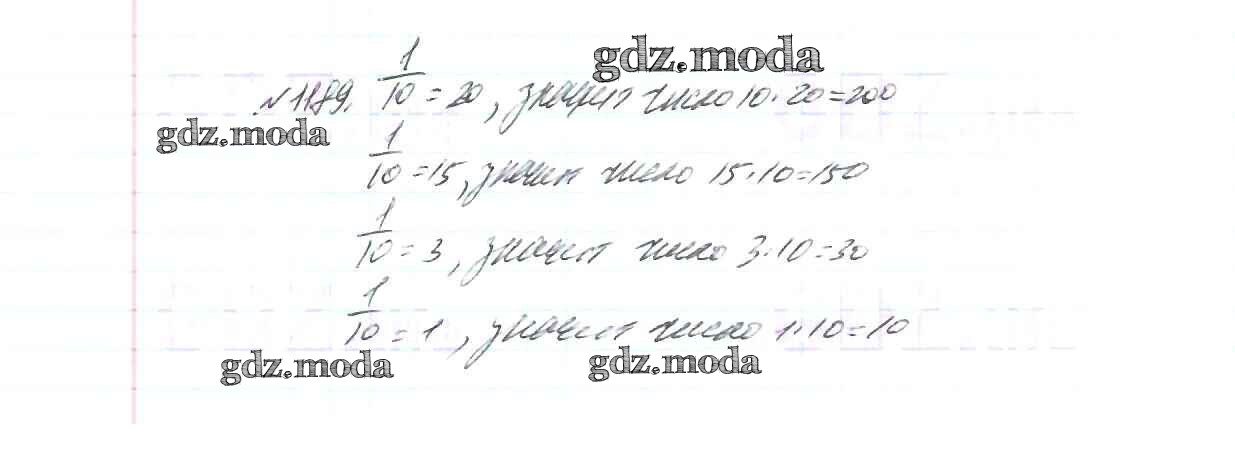 gdz.moda
№1189. 1/10 = 20, значит число 10·20=200
gdz.moda
1/10 = 15, значит число 15·10=150
1/10 = 3, значит число 3·10=30
1/10 = 1, значит число 1·10=10
gdz.moda gdz.moda